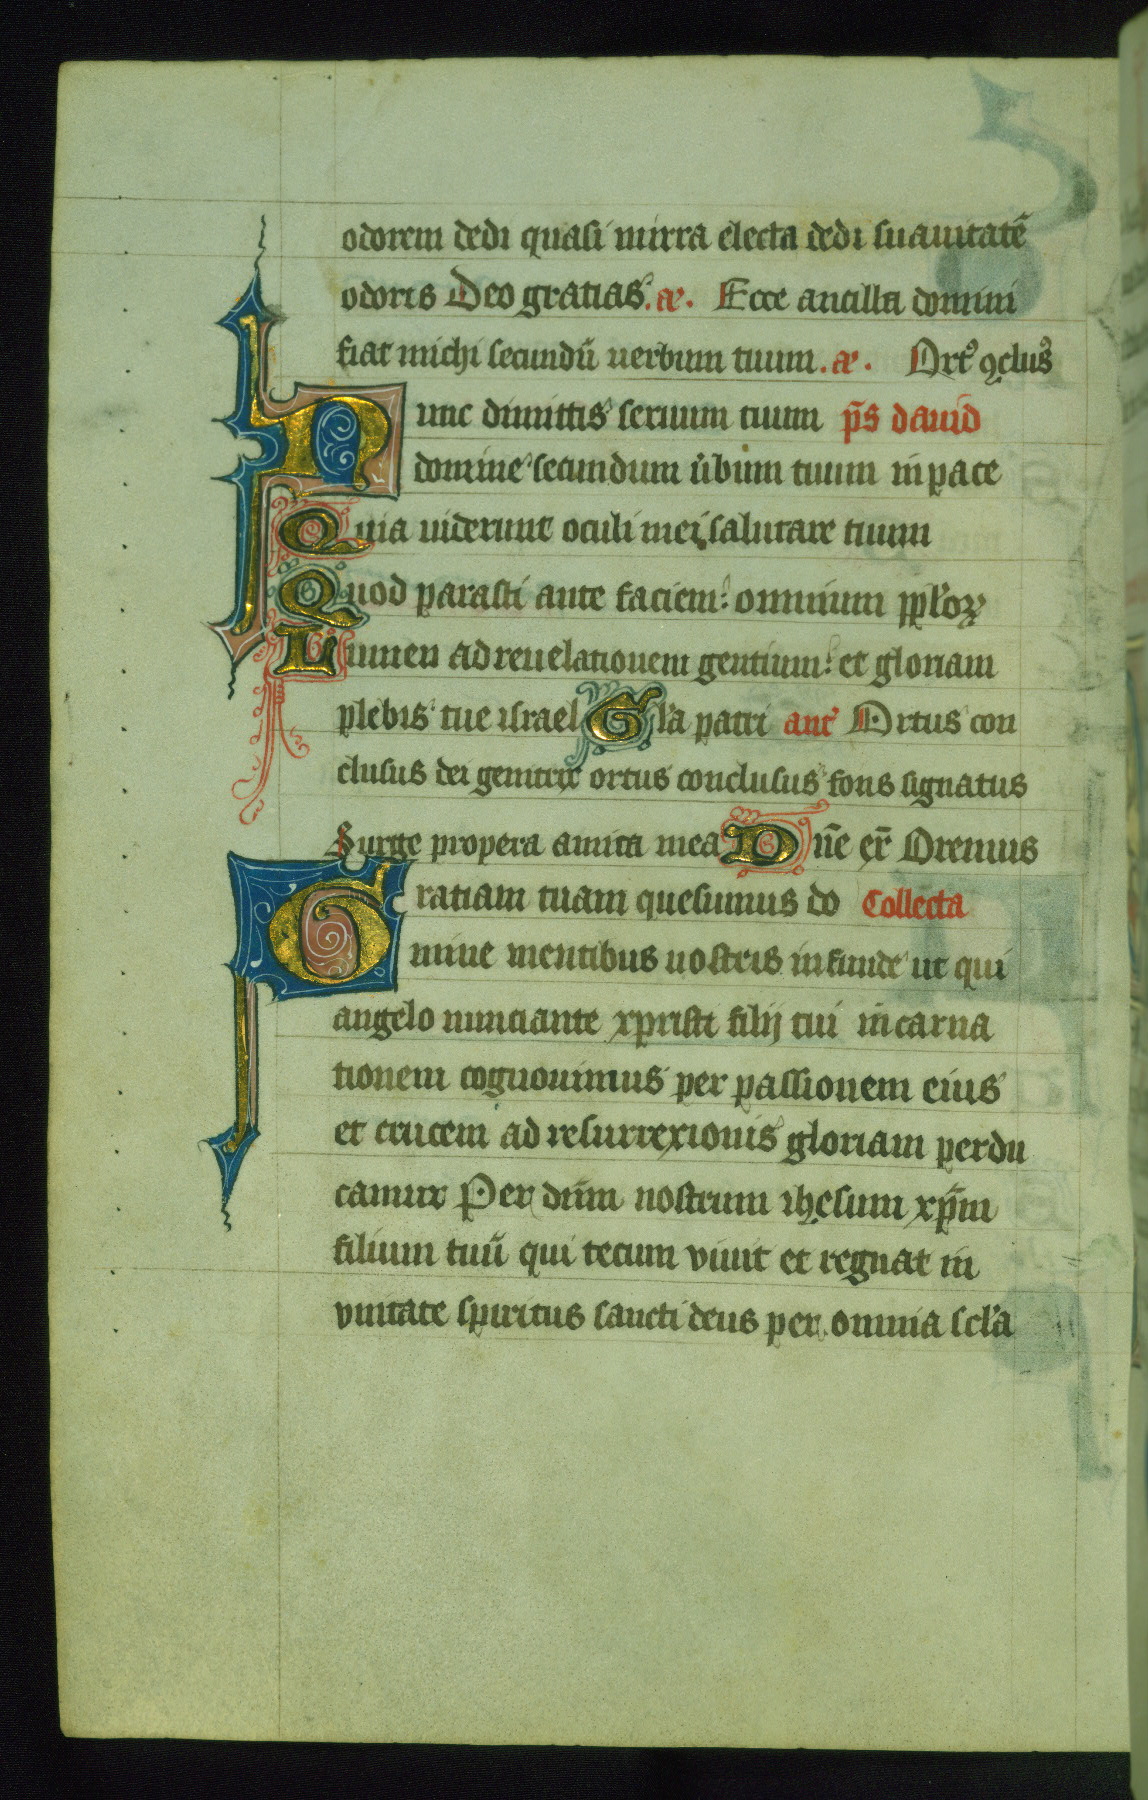 odorem dedi quasi mirra electa dedi suauitatē
odoris Deo gratias .ꝶ. Ecce ancilla domini
fiat michi secundū uerbum tuum .ꝶ. Ort᷒ ꝯclus᷒
Nunc dimittis seruum tuum p̄s dauid
domine secundum ūbum tuum in pace
Quia uiderunt oculi mei salutare tuum
Quod parasti ante faciem: omnium pplōꝝ
Lumen ad reuelationem gentium: et gloriam
plebis tue israel Gl̄a patri ant᷒ Ortus con
clusus dei genitrix ortus conclusus fons signatus
Surge propera amica mea Dn̄e ex̄ Oremus
Gratiam tuam quesumus do Collecta
mine mentibus nostris infunde ut qui
angelo nunciante xpristi filij tui incarna
tionem cognouimus per passionem eius
et crucem ad resurrexionis gloriam perdu
camur Per dn̄m nostrum ihesum xp̄m
filium tuū qui tecum viuit et regnat in
vnitate spiritus sancti deus per omnia scl̄a